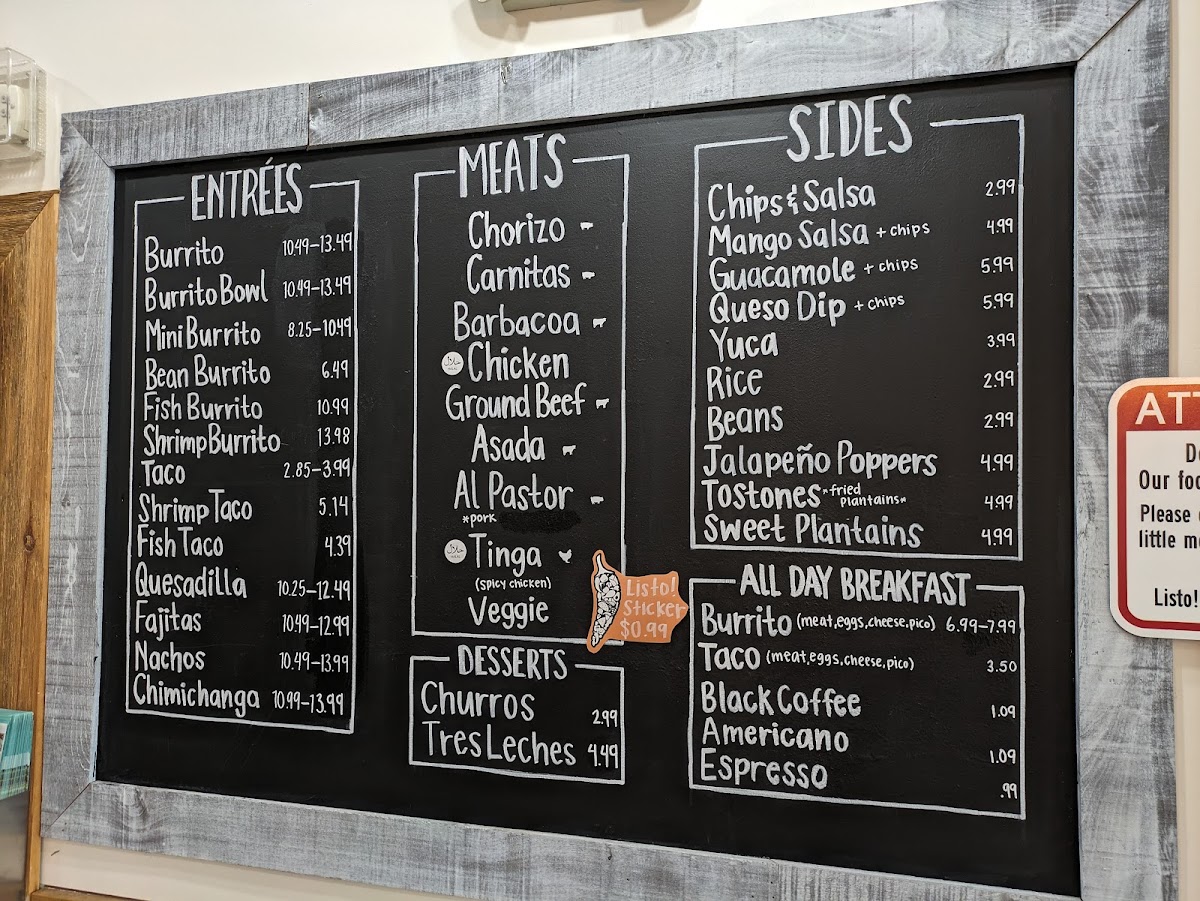 ENTRÉES
Burrito 10.49-13.49
Burrito Bowl 10.49-13.49
Mini Burrito 8.25-10.49
Bean Burrito 6.49
Fish Burrito 10.99
Shrimp Burrito 13.98
Taco 2.85-3.99
Shrimp Taco 5.14
Fish Taco 4.39
Quesadilla 10.25-12.49
Fajitas 10.49-12.99
Nachos 10.49-13.99
Chimichanga 10.99-13.99
MEATS
Chorizo
Carnitas
Barbacoa
حلال Chicken
Ground Beef
Asada
Al Pastor
*pork
حلال Tinga
(spicy chicken)
Veggie
Listo!
Sticker
$0.99
DESSERTS
Churros 2.99
Tres Leches 4.49
SIDES
Chips & Salsa 2.99
Mango Salsa + chips 4.99
Guacamole + chips 5.99
Queso Dip + chips 5.99
Yuca 3.99
Rice 2.99
Beans 2.99
Jalapeño Poppers 4.99
Tostones *fried plantains* 4.99
Sweet Plantains 4.99
ALL DAY BREAKFAST
Burrito (meat,eggs,cheese,pico) 6.99-7.99
Taco (meat,eggs,cheese,pico) 3.50
Black Coffee 1.09
Americano 1.09
Espresso .99
Our
Please
little
Listo!